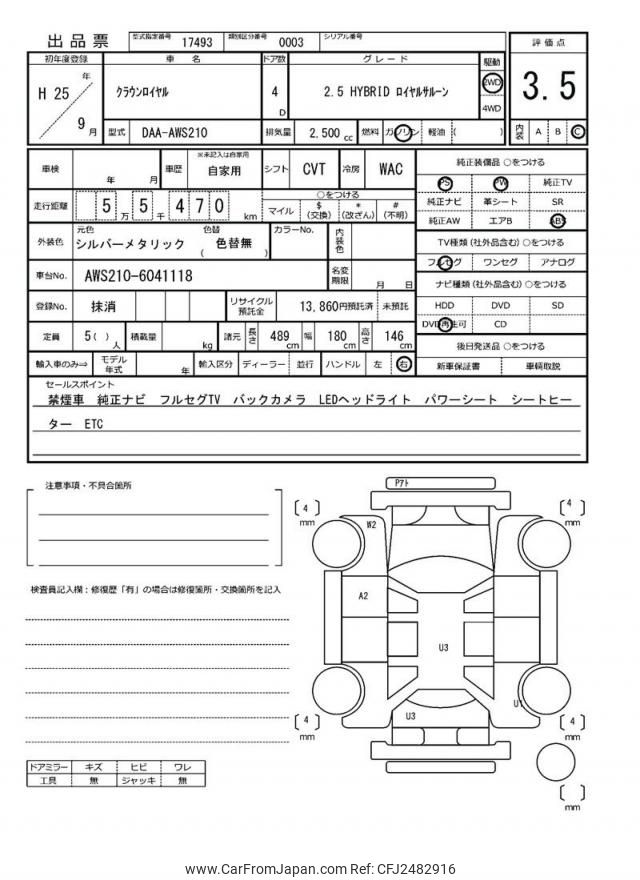 出品票 型式指定番号 17493 類別区分番号 0003 シリアル番号
評価点
3.5
内装 A B C
初年度登録 車名 ドア数 グレード 駆動
H 25 年 9 月
クラウンロイヤル 4 D 2.5 HYBRID ロイヤルサルーン 2WD
4WD
型式 DAA-AWS210 排気量 2,500 cc 燃料 ガソリン 軽油 ( )
車検 年 月 車歴 ※未記入は自家用 自家用 シフト CVT 冷房 WAC
走行距離 5 万 5 千 4 7 0 km ○をつける
マイル $(交換) *(改ざん) #(不明)
外装色 元色 シルバーメタリック 色替 ( 色替無 ) カラーNo. 内装色
車台No. AWS210-6041118 名変期限 月 日
登録No. 抹消 リサイクル預託金 13,860円預託済 未預託
定員 5( ) 人 積載量 kg 諸元 長さ 489 cm 幅 180 cm 高さ 146 cm
輸入車のみ⇒ モデル年式 年 輸入区分 ディーラー 並行 ハンドル 左 右
純正装備品 ○をつける
PS PW 純正TV
純正ナビ 革シート SR
純正AW エアB ABS
TV種類(社外品含む)○をつける
フルセグ ワンセグ アナログ
ナビ種類(社外品含む)○をつける
HDD DVD SD
DVD再生可 CD
後日発送品 ○をつける
新車保証書 車輌取説
セールスポイント
禁煙車 純正ナビ フルセグTV バックカメラ LEDヘッドライト パワーシート シートヒー
ター ETC
注意事項・不具合箇所
検査員記入欄：修復歴「有」の場合は修復箇所・交換箇所を記入
ドアミラー キズ ヒビ ワレ
工具 無 ジャッキ 無
Pｱﾄ
[ 4 ] mm
[ 4 ] mm
W2
A2
U3
U3
U1
[ 4 ] mm
[ 4 ] mm
[ ] mm
www.CarFromJapan.com Ref: CFJ2482916